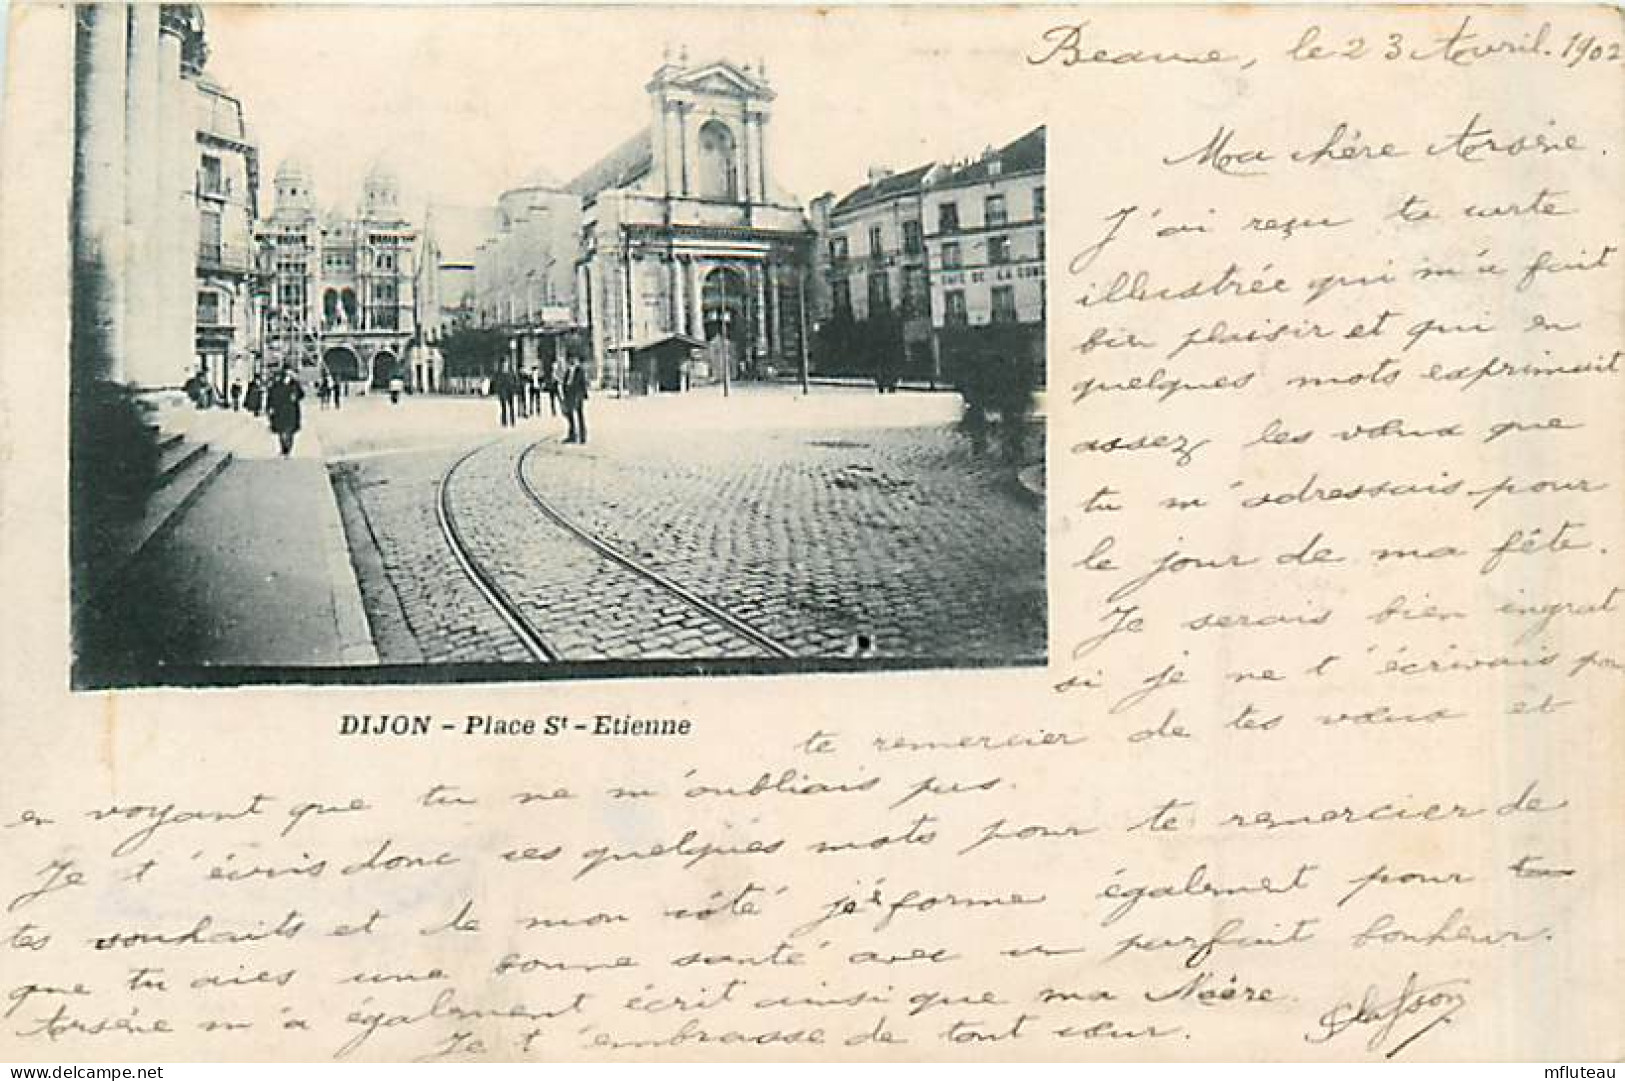 Beaune, le 23 Avril. 1902
Ma chère Arsène.
J'ai reçu ta carte
illustrée qui m'a fait
bien plaisir et qui en
quelques mots exprimait
assez les vœux que
tu m'adressais pour
le jour de ma fête.
Je serais bien ingrat
si je ne t'écrivais pour
te remercier de tes vœux et
en voyant que tu ne m'oubliais pas.
Je t'écris donc ces quelques mots pour te remercier de
tes souhaits et de mon côté je forme également pour
que tu aies une bonne santé avec un parfait bonheur.
Arsène m'a également écrit ainsi que ma Mère.
Je t'embrasse de tout cœur.
CAFÉ DE LA CON
DIJON - Place St - Etienne
delcampe.net
mfluteau